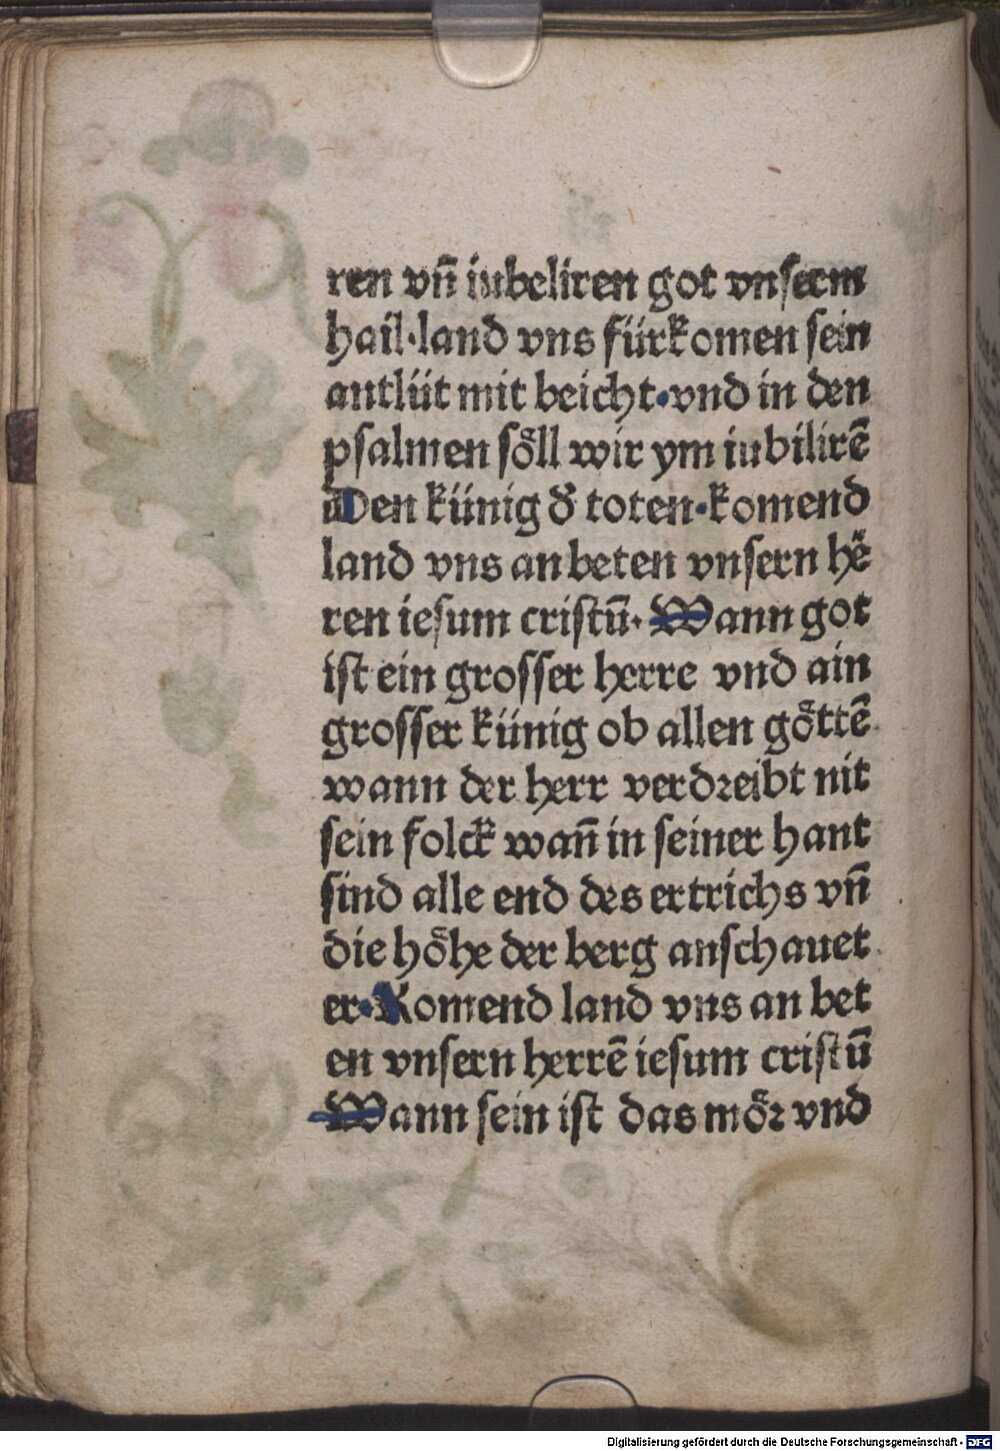 ren vñ iubeliren got vnserm
hail·land vns fürkomen sein
antlüt mit beicht·vnd in den
psalmen söll wir ym iubilirē
Den künig d̕ toten·komend
land vns an beten vnsern hē
ren iesum cristū· Wann got
ist ein grosser herre vnd ain
grosser künig ob allen göttē
wann der herr verdreibt nit
sein folck wañ in seiner hant
sind alle end des ertrichs vñ
die höhe der berg anschauet
er·Komend land vns an bet
en vnsern herrē iesum cristū
Wann sein ist das mör vnd
Digitalisierung gefördert durch die Deutsche Forschungsgemeinschaft - DFG